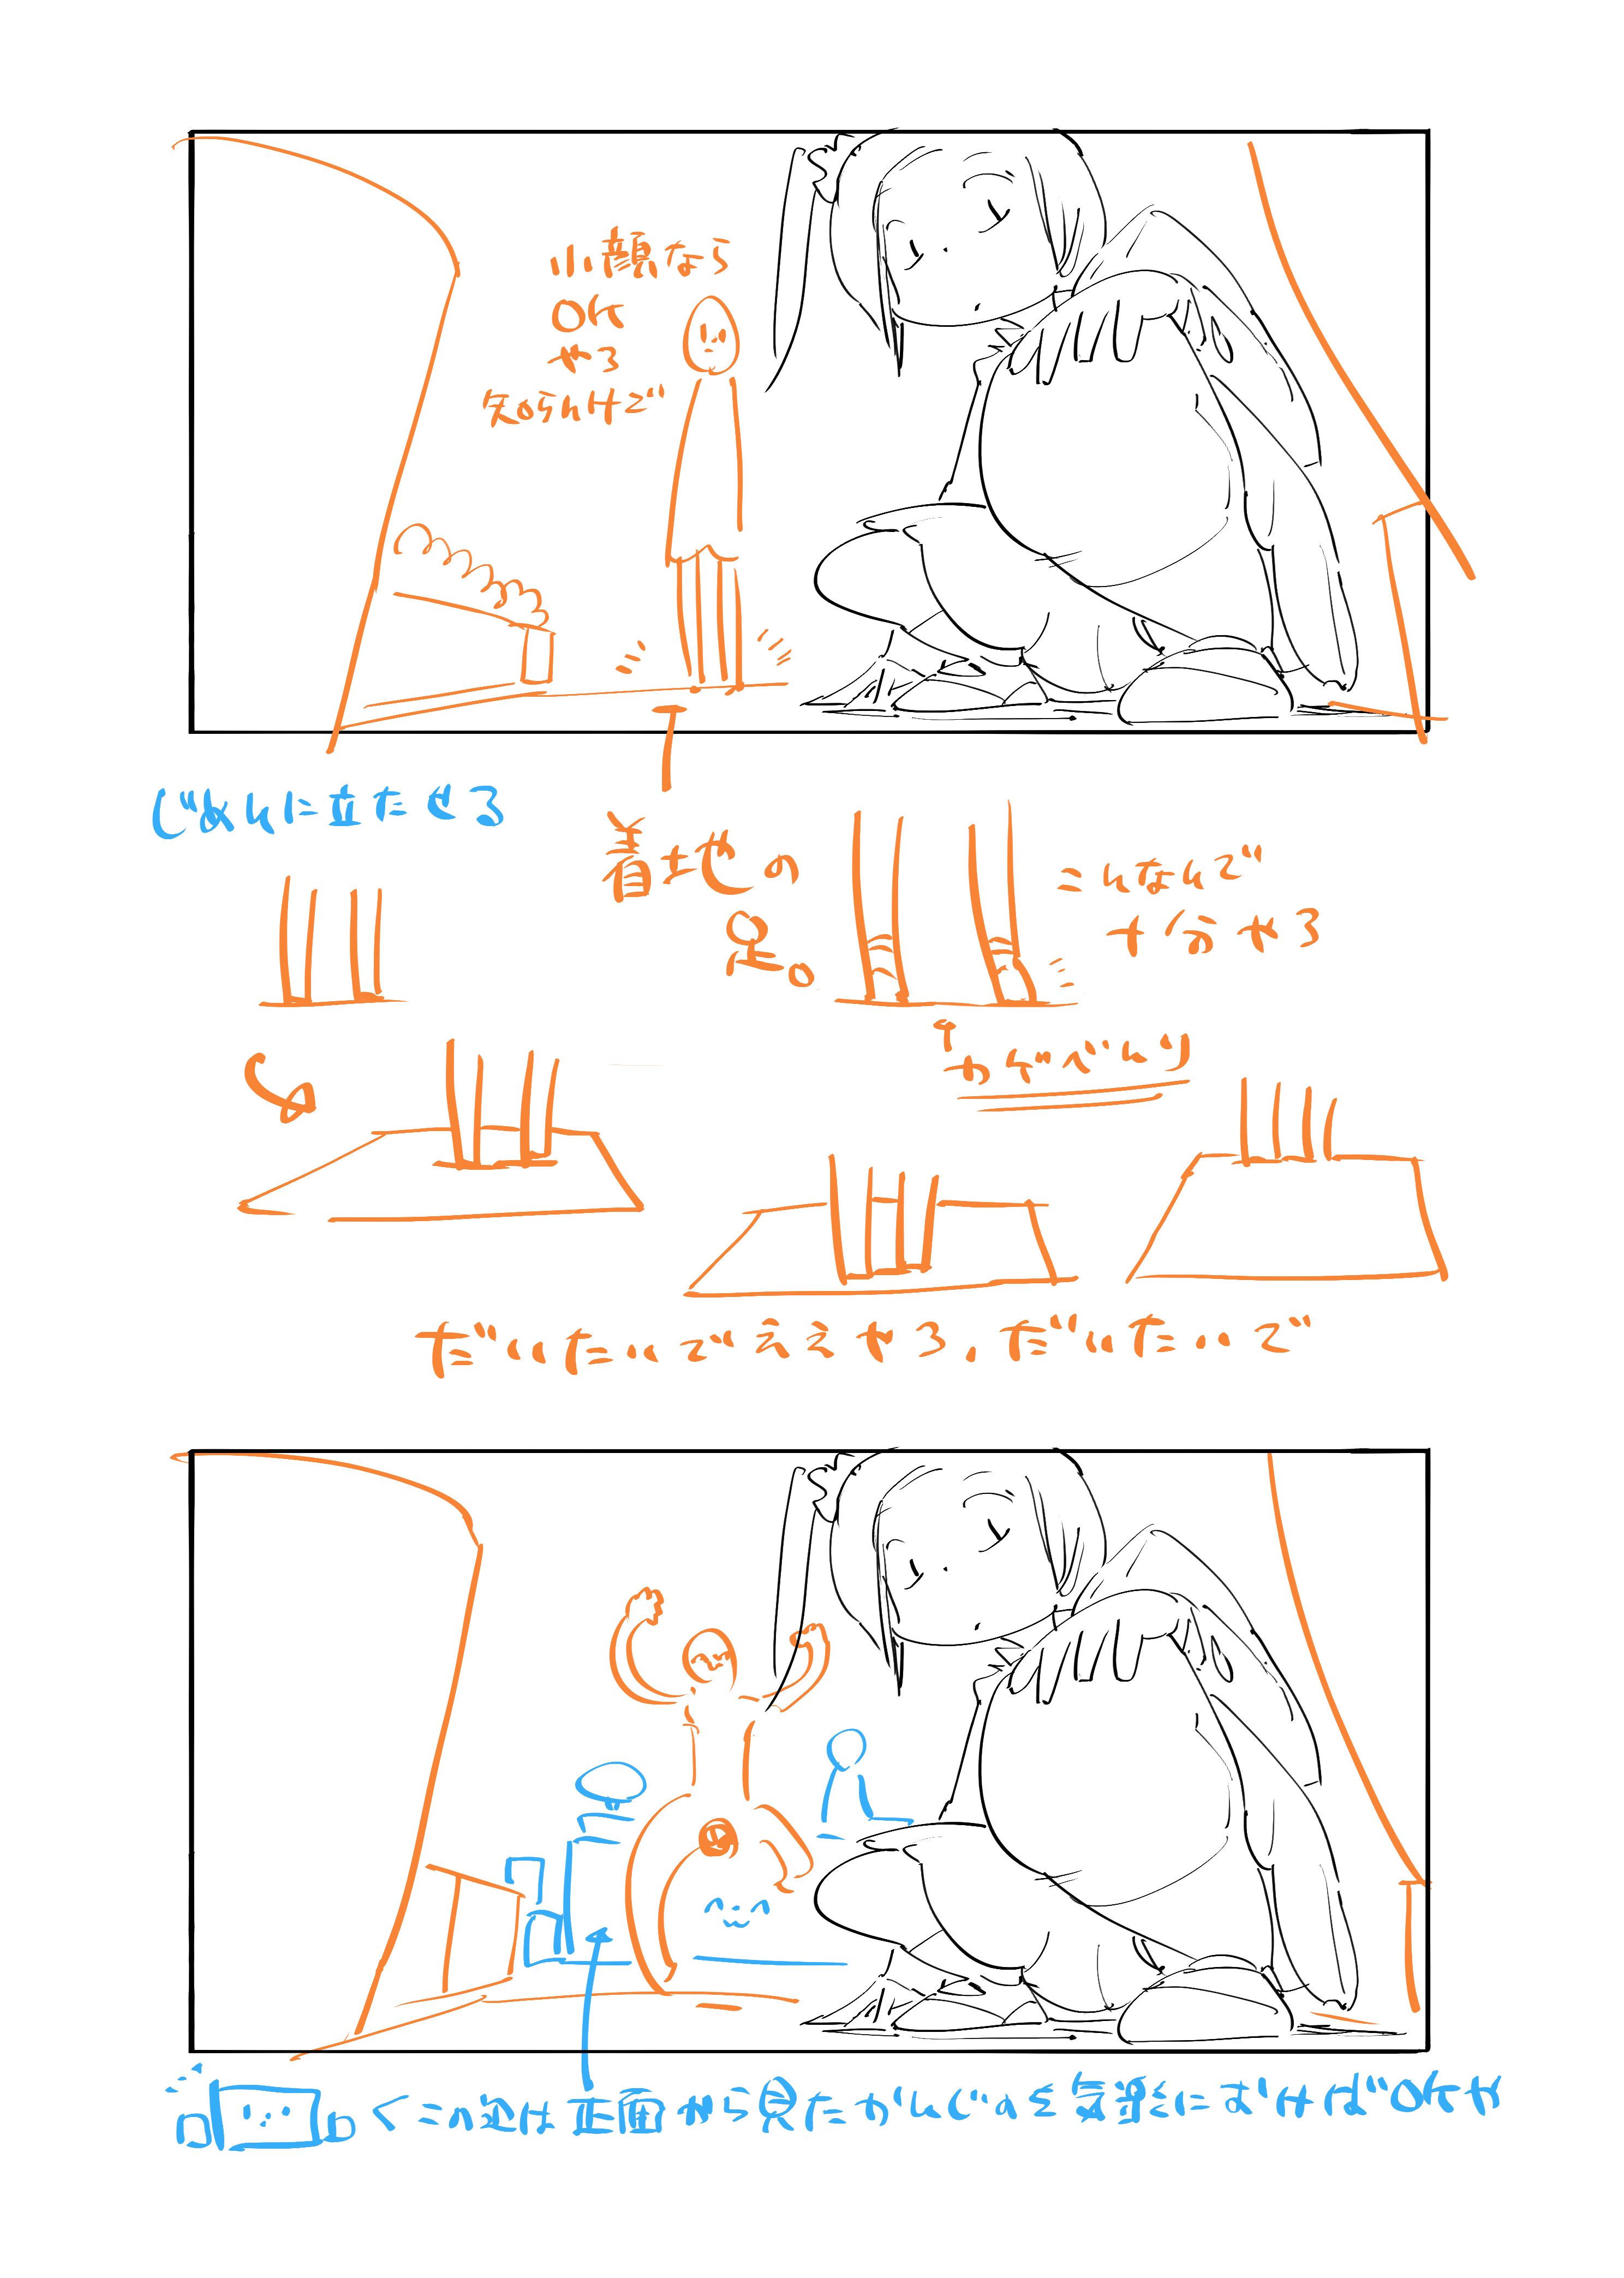 小顔なら
OK
やろ
知らんけど
じめんに立たせる
着地の
足。
こんなんで
十分やろ
カゲべんり
だいたいでええやろ、だいたいで
くこの辺は正面から見たかんじのを気楽におけばOKや